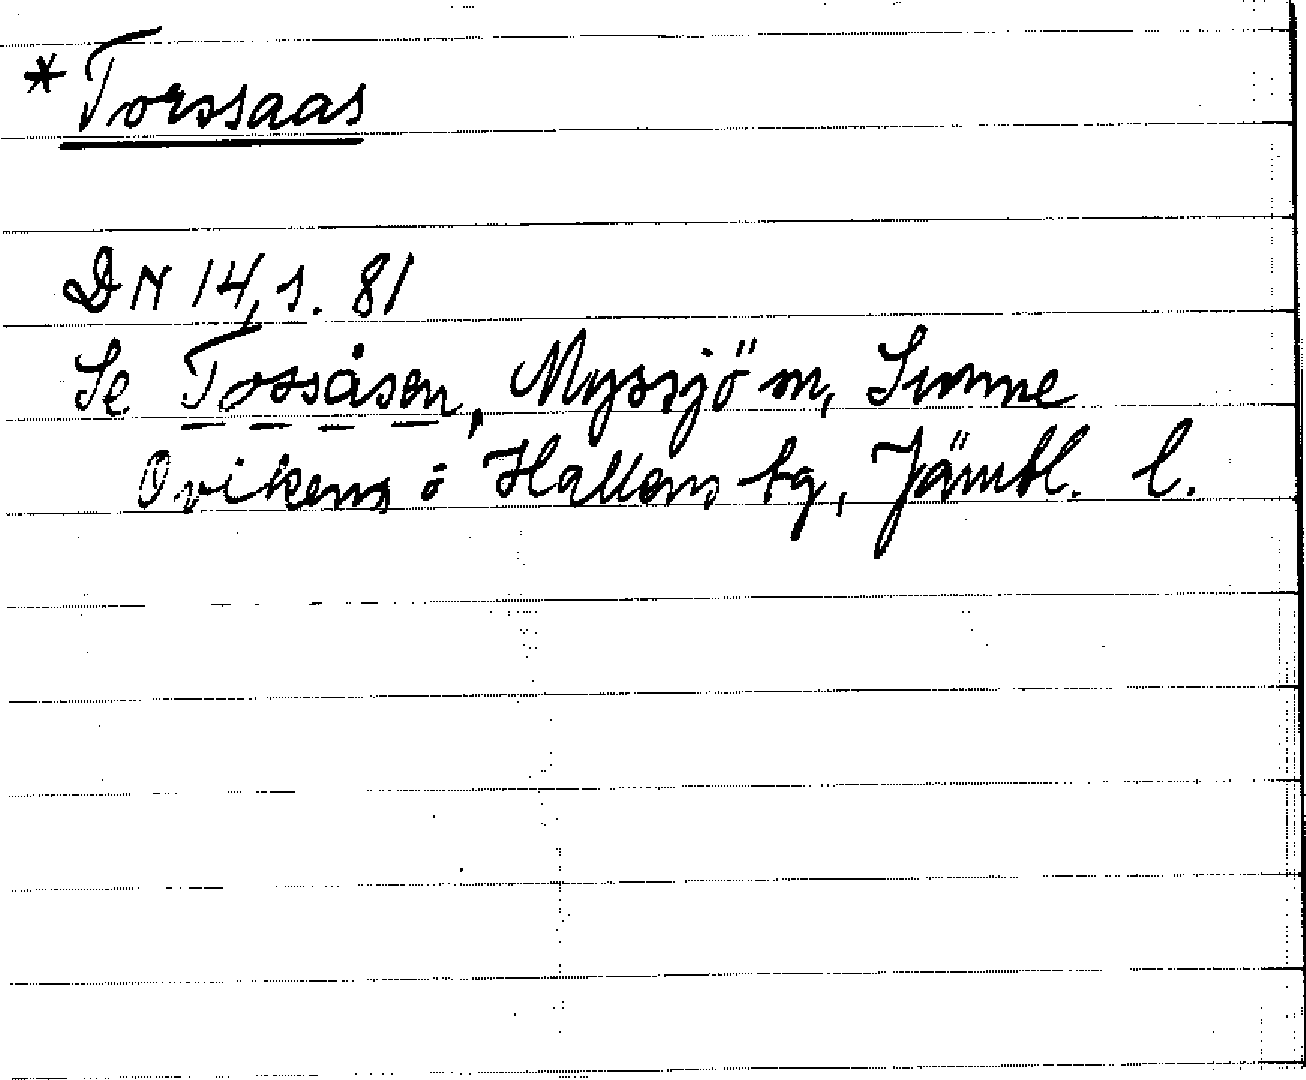 * Torssaas
DN 14, s. 81
Se Tossåsen, Myssjö sn, Sunne
Ovikens o Hallens tg, Jämtl. l.